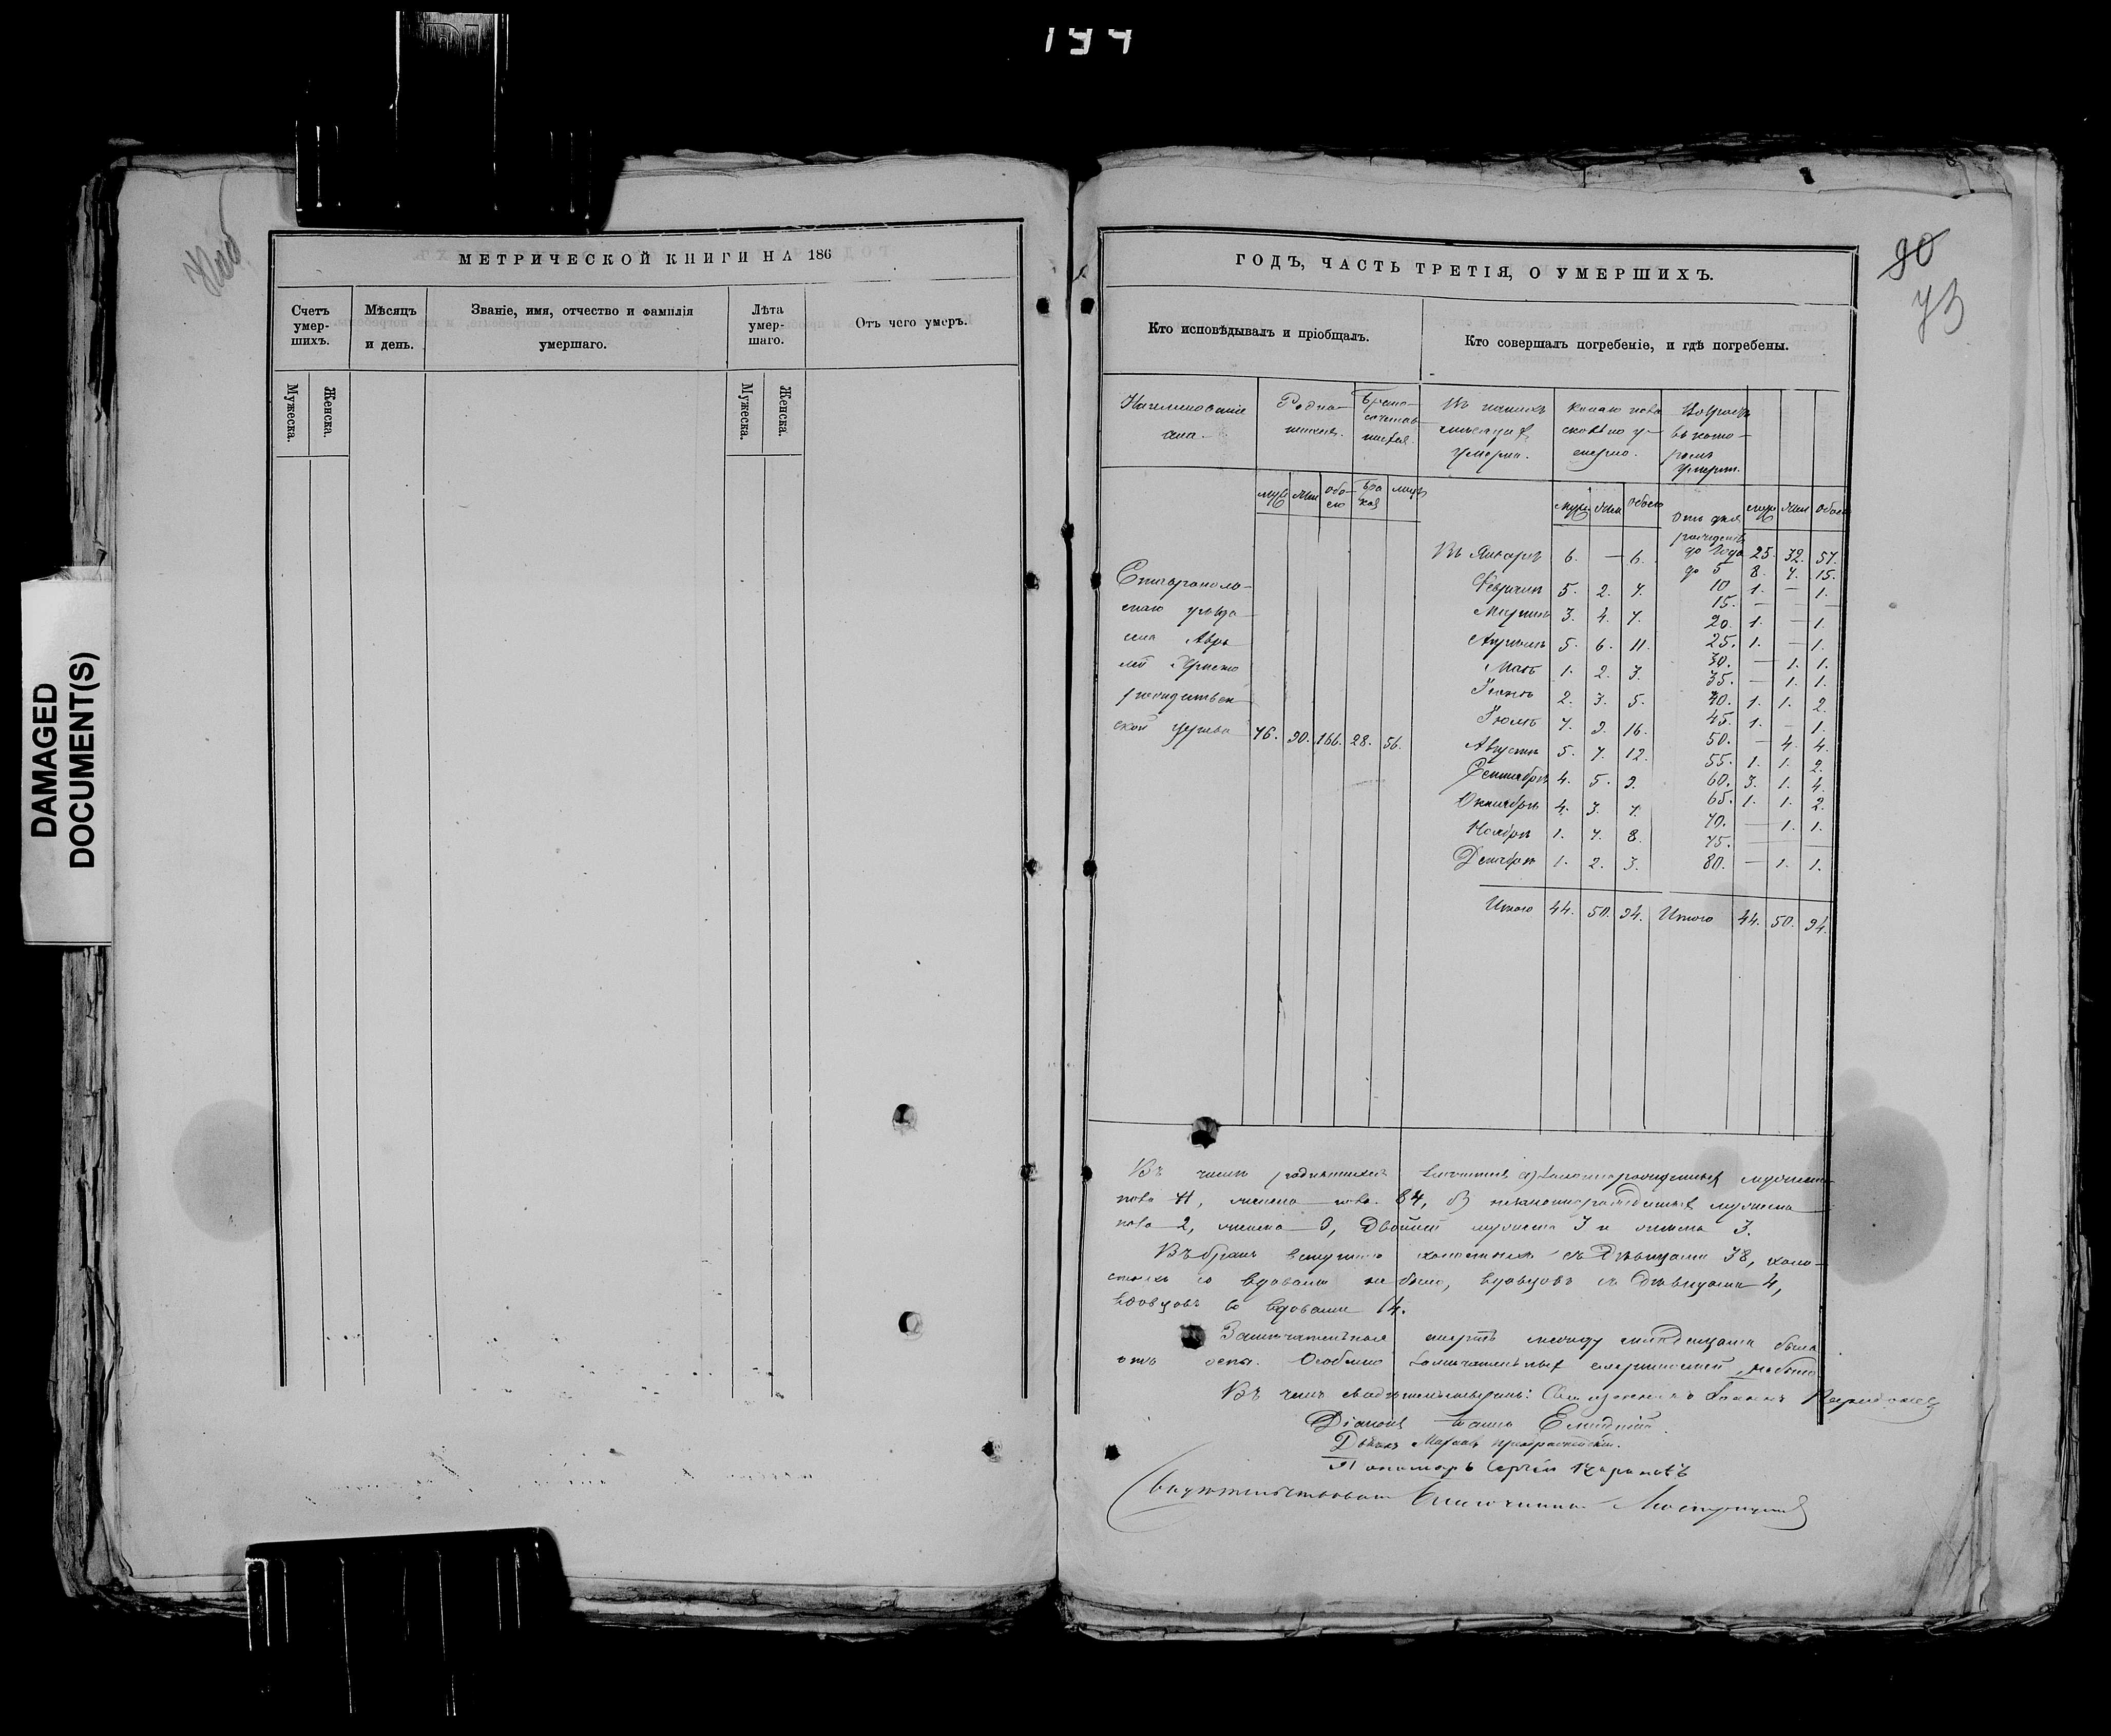 144
DAMAGED
DOCUMENT(S)
МЕТРИЧЕСКОЙ КНИГИ НА 186
Счетъ умер-шихъ.
Мѣсяцъ и день.
Званіе, имя, отчество и фамилія умершаго.
Лѣта умер-шаго.
Отъ чего умеръ.
Мужеска.
Женска.
Мужеска.
Женска.
90
73
ГОДЪ, ЧАСТЬ ТРЕТІЯ, О УМЕРШИХЪ.
Кто исповѣдывалъ и пріобщалъ.
Кто совершалъ погребеніе, и гдѣ погребены.
Наименованіе села.
Родив-шихся.
Брако-сочетав-шихся.
Въ какихъ мѣсяцахъ умерли.
какаго пола сколько у-мерло.
Возрастъ въ кото-ромъ умерли.
муж жен обо-его бра-ковъ лицъ
муж жен обоего
муж жен обоего
Отъ дня рожденія до года 25. 32. 57.
Въ Январѣ 6. — 6.
до 5 8. 7. 15.
Февралѣ 5. 2. 7.
10 1. — 1.
15. — — —
Мартѣ 3. 4. 7.
20. 1. — 1.
Апрѣлѣ 5. 6. 11.
25. 1. — 1.
30. — 1. 1.
Маѣ 1. 2. 3.
35. — 1. 1.
Іюнѣ 2. 3. 5.
40. 1. 1. 2.
Іюлѣ 7. 9. 16.
45. 1. — 1.
50. — 4. 4.
Августѣ 5. 7. 12.
55. 1. 1. 2.
Сентябрѣ 4. 5. 9.
60. 3. 1. 4.
Октябрѣ 4. 3. 7.
65. 1. 1. 2.
70. — 1. 1.
Ноябрѣ 1. 7. 8.
75. — — —
Декабрѣ 1. 2. 3.
80. — 1. 1.
Итого 44. 50. 94. Итого 44. 50. 94.
Ставрополь-
скаго уѣзда
села
Христо
рождествен
ской церкви 76. 90. 166. 28. 56.
Въ числѣ родившихся законнорожденныхъ мужеска
пола женска пола 84, незаконнорожденныхъ мужеска
пола 2, женска 3, двойней мужеска 3 и женска 3.
Въ бракъ вступило холостыхъ съ дѣвицами 38, холо-
стыхъ со вдовами не было, вдовцовъ съ дѣвицами 4,
вдовцовъ со вдовами 14.
Замѣчательная смерть между младенцами была
отъ оспы. Особенно замѣчательныхъ не было
Въ чемъ свидѣтельствуемъ: Священникъ Іоаннъ
Діаконъ
Дьячекъ
Пономарь Сергѣй
Свидѣтельствовалъ Благочинный